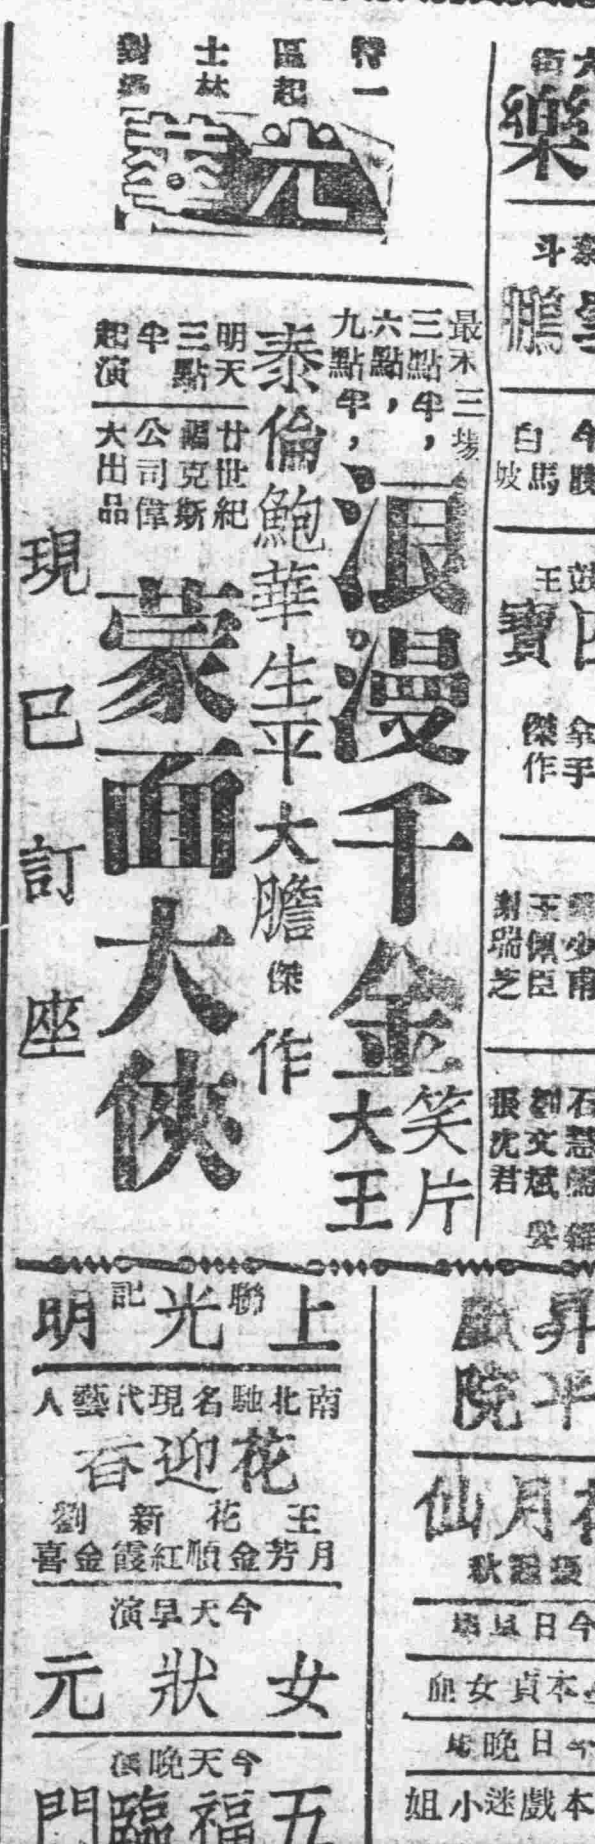 特一
區起
士林
對過
光華
最末三場
三點半，
六點，
九點半，
浪漫千金
笑片
大王
泰倫鮑華生平大膽傑作
明天
三點
半
起演
廿世紀
福克斯
公司偉
大出品
蒙面大俠
現已訂座
上光明
聯記
南北馳名現代藝人
花迎春
王月芳
花金順
新紅霞
劉金喜
今天早演
女狀元
今天晚演
五福臨門
樂
斗
鵬
今晚
白馬坡
王
寶
拿手
傑作
王佩臣
謝瑞芝
石慧儒
劉文斌
張沈君
昇平
戲院
月仙
今日早場
本貞女血
今日晚場
本戲迷小姐